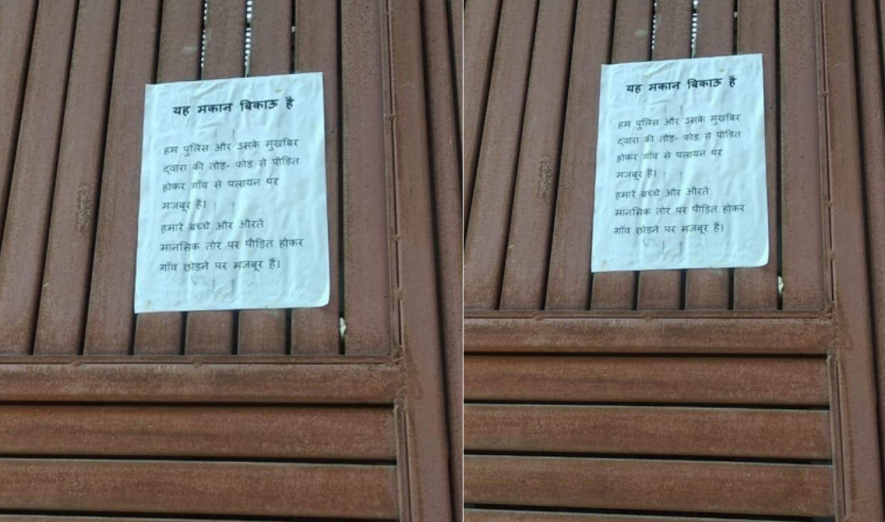 यह मकान बिकाऊ है
हम पुलिस और उसके मुखबिर
द्वारा की तोड़- फोड़ से पीड़ित
होकर गाँव से पलायन पर
मजबूर हैं।
हमारे बच्चे और औरते
मानसिक तोर पर पीड़ित होकर
गाँव छोड़ने पर मजबूर हैं।
यह मकान बिकाऊ है
हम पुलिस और उसके मुखबिर
द्वारा की तोड़- फोड़ से पीड़ित
होकर गाँव से पलायन पर
मजबूर हैं।
हमारे बच्चे और औरते
मानसिक तोर पर पीड़ित होकर
गाँव छोड़ने पर मजबूर हैं।